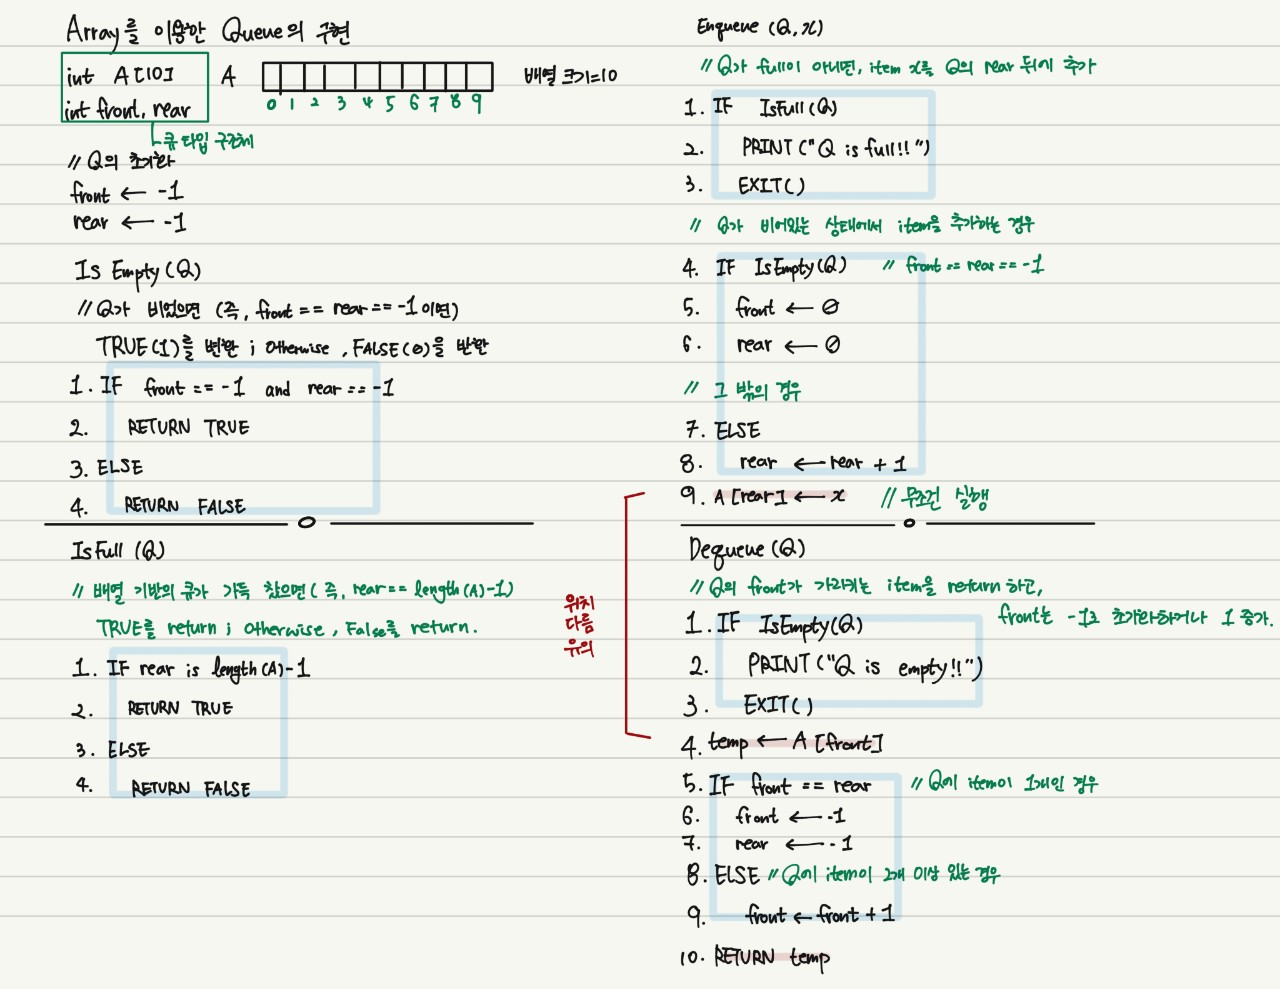 Array를 이용한 Queue의 구현
int A[10]
int front, rear
A
0 1 2 3 4 5 6 7 8 9
배열 크기=10
큐 타입 구조체
// Q의 초기화
front ← -1
rear ← -1
Is Empty(Q)
// Q가 비었으면 (즉, front == rear == -1 이면)
TRUE(1)를 반환 ; Otherwise, FALSE(0)을 반환
1. IF front == -1 and rear == -1
2. RETURN TRUE
3. ELSE
4. RETURN FALSE
IsFull (Q)
// 배열 기반의 큐가 가득 찼으면 (즉, rear == length(A)-1)
TRUE를 return ; Otherwise, False를 return.
1. IF rear is length(A)-1
2. RETURN TRUE
3. ELSE
4. RETURN FALSE
Enqueue (Q, x)
// Q가 full이 아니면, item x를 Q의 rear 뒤에 추가
1. IF IsFull(Q)
2. PRINT("Q is full!!")
3. EXIT()
// Q가 비어있는 상태에서 item을 추가하는 경우
4. IF IsEmpty(Q) // front == rear == -1
5. front ← 0
6. rear ← 0
// 그 밖의 경우
7. ELSE
8. rear ← rear + 1
9. A[rear] ← x // 무조건 실행
위치
다름
유의
Dequeue (Q)
// Q의 front가 가리키는 item을 return 하고,
front는 -1로 초기화하거나 1 증가.
1. IF IsEmpty(Q)
2. PRINT("Q is empty!!")
3. EXIT()
4. temp ← A[front]
5. IF front == rear // Q에 item이 1개인 경우
6. front ← -1
7. rear ← -1
8. ELSE // Q에 item이 2개 이상 있는 경우
9. front ← front + 1
10. RETURN temp